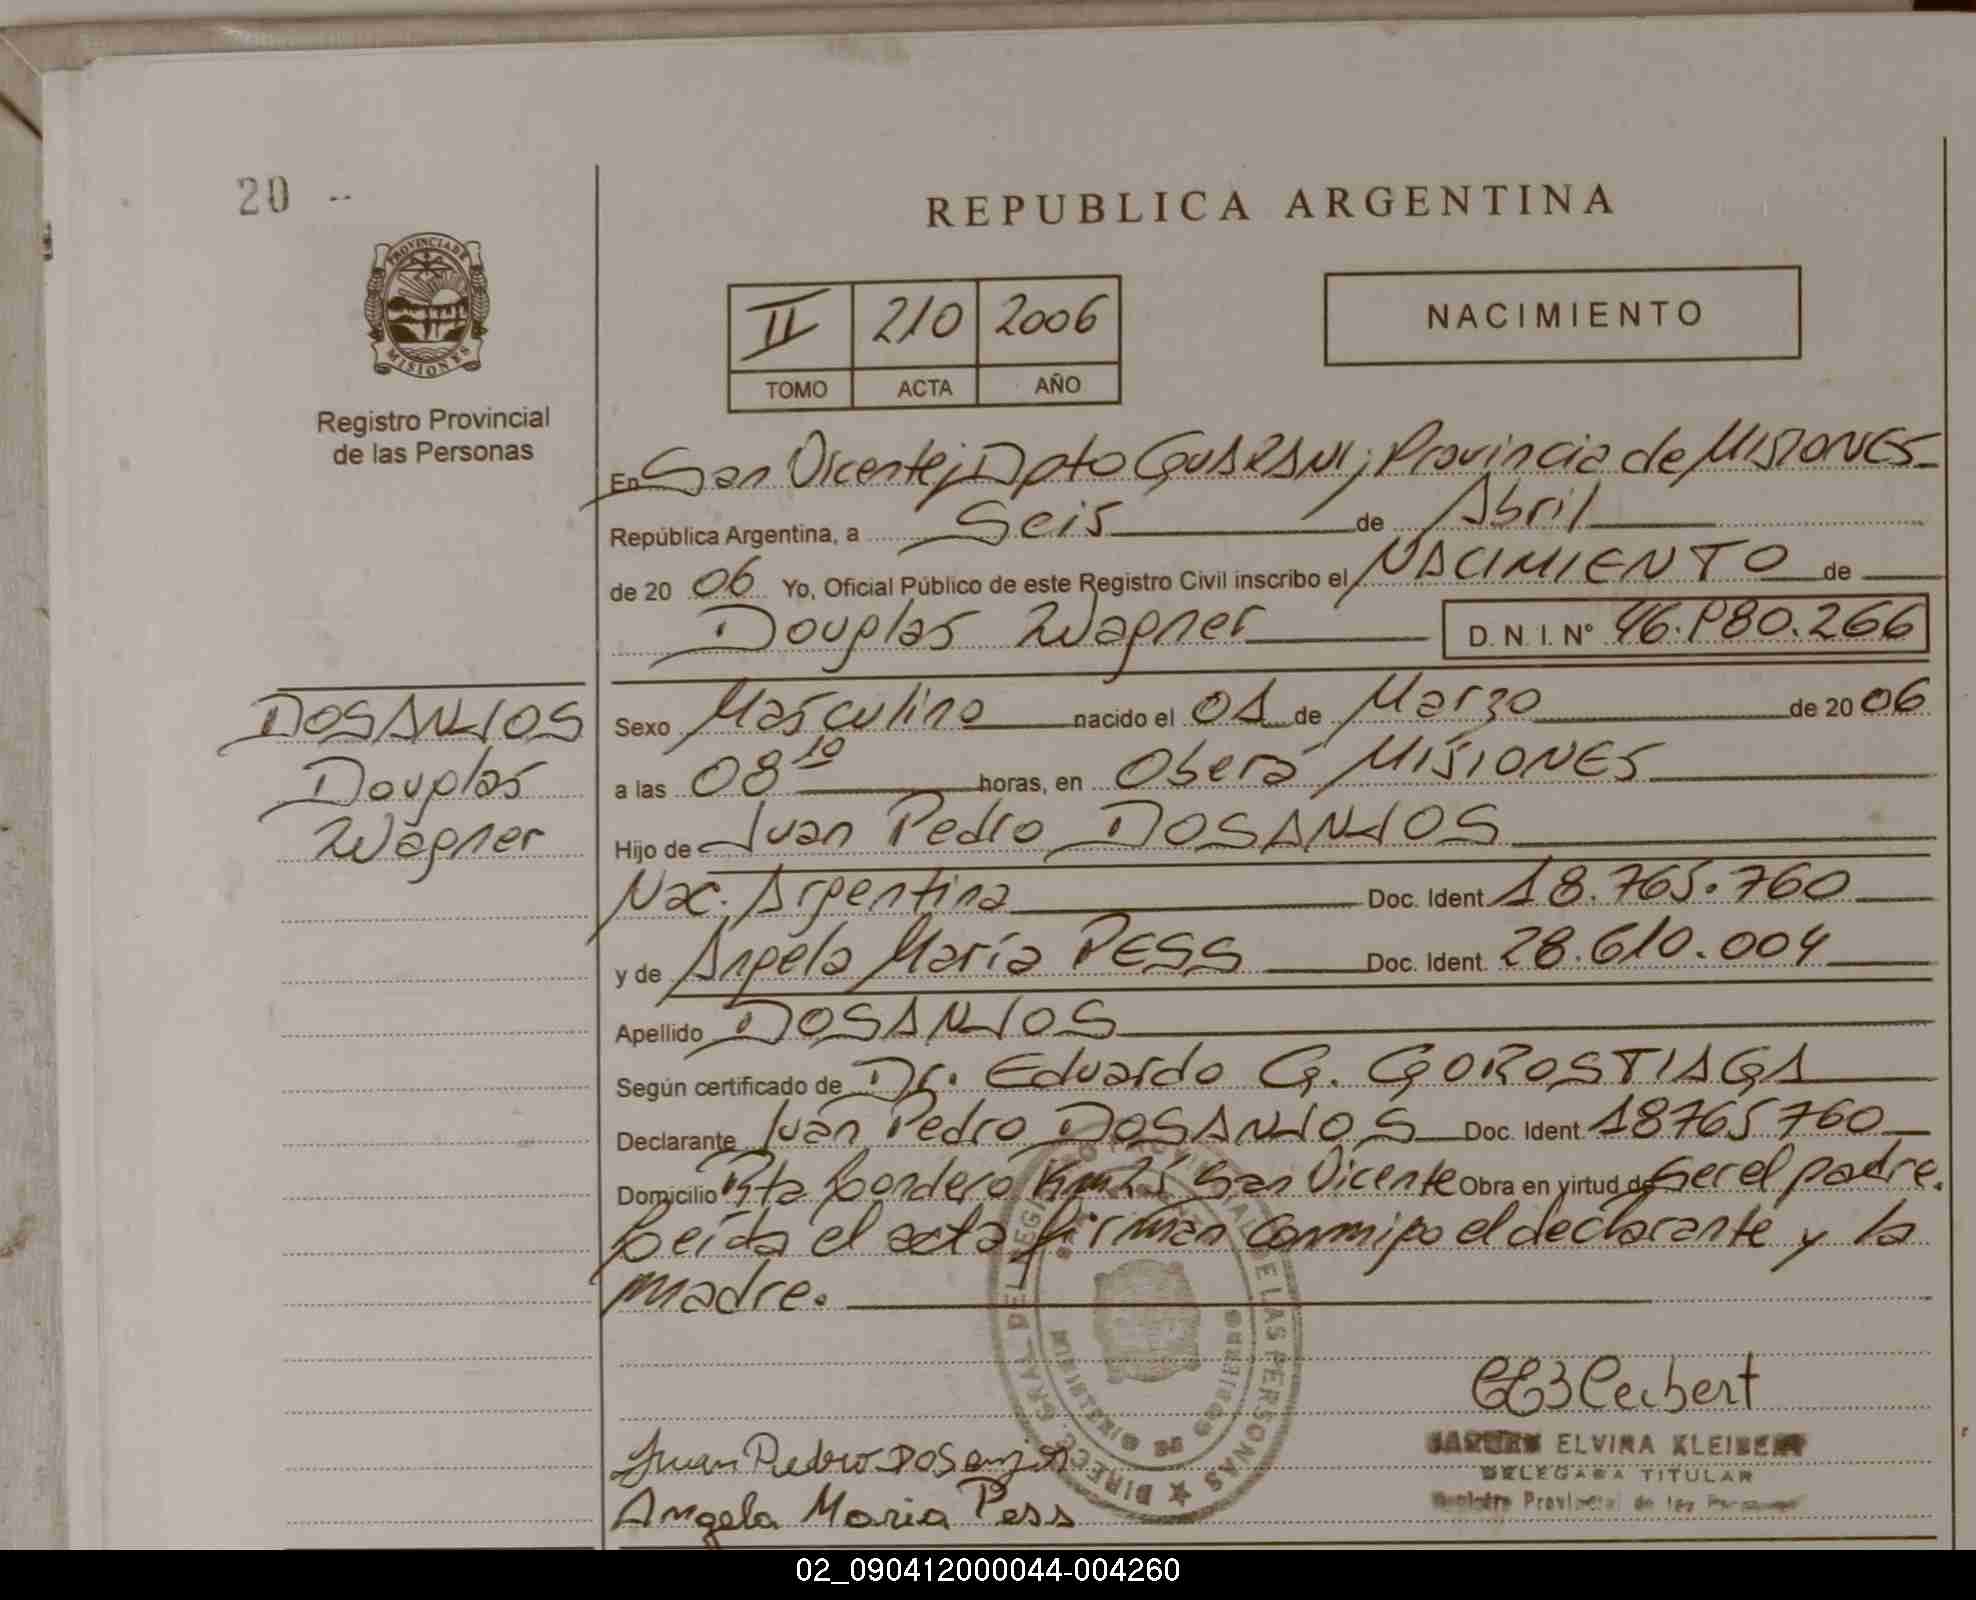 20 --
PROVINCIA DE
MISIONES
Registro Provincial
de las Personas
REPUBLICA ARGENTINA
II 210 2006
TOMO ACTA AÑO
NACIMIENTO
En San Vicente, Dpto GUARANI, Provincia de MISIONES
República Argentina, a Seis de Abril
de 20 06 Yo, Oficial Público de este Registro Civil inscribo el NACIMIENTO de
Douglas Wagner D. N. I. Nº 46.980.266
DOSANJOS
Douglas
Wagner
Sexo Masculino nacido el 01 de Marzo de 20 06
a las 08 10 horas, en Oberá MISIONES
Hijo de Juan Pedro DOSANJOS
Nac. Argentina Doc. Ident 18.765.760
y de Angela María PESS Doc. Ident. 28.610.004
Apellido DOSANJOS
Según certificado de Dr. Eduardo G. GOROSTIAGA
Declarante Juan Pedro DOSANJOS Doc. Ident 18765760
Domicilio Pta Londero San Vicente Obra en virtud de Ser el padre.
Leída el acta firman conmigo el declarante y la
madre.
DIRECC. GRAL. DEL REGISTRO PROVINCIAL DE LAS PERSONAS
MINISTERIO DE GOBIERNO
Juan Pedro DOSanjos
Angela Maria Pess
ELVIRA KLEIBERT
DELEGADA TITULAR
Registro Provincial de las Personas
02_090412000044-004260